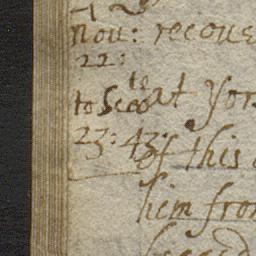 Nou: recoue
22:
to Sco
te
at Yor
23: 43:
of this
him fro